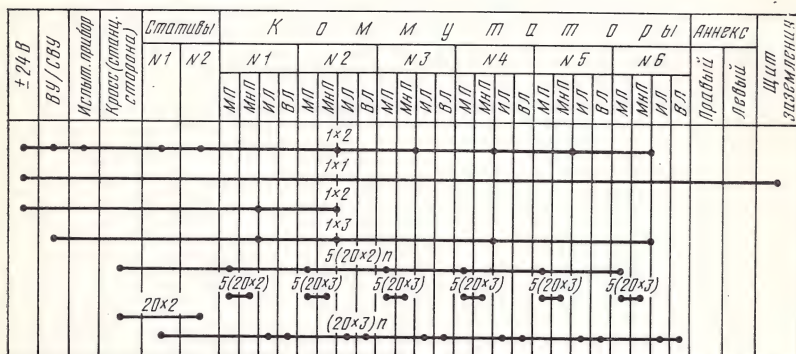 ± 24 В
ВУ/СВУ
Испыт. прибор
Кросс (станц. сторона)
Стативы
№1 №2
Коммутаторы
№1 №2 №3 №4 №5 №6
МП МнП ИЛ ВЛ МП МнП ИЛ ВЛ МП МнП ИЛ ВЛ МП МнП ИЛ ВЛ МП МнП ИЛ ВЛ МП МнП ИЛ ВЛ
Аннекс
Правый
Левый
Щит заземления
1×2
1×1
1×2
1×3
5(20×2)п
5(20×2) 5(20×3) 5(20×3) 5(20×3) 5(20×3) 5(20×3)
20×2
(20×3)п